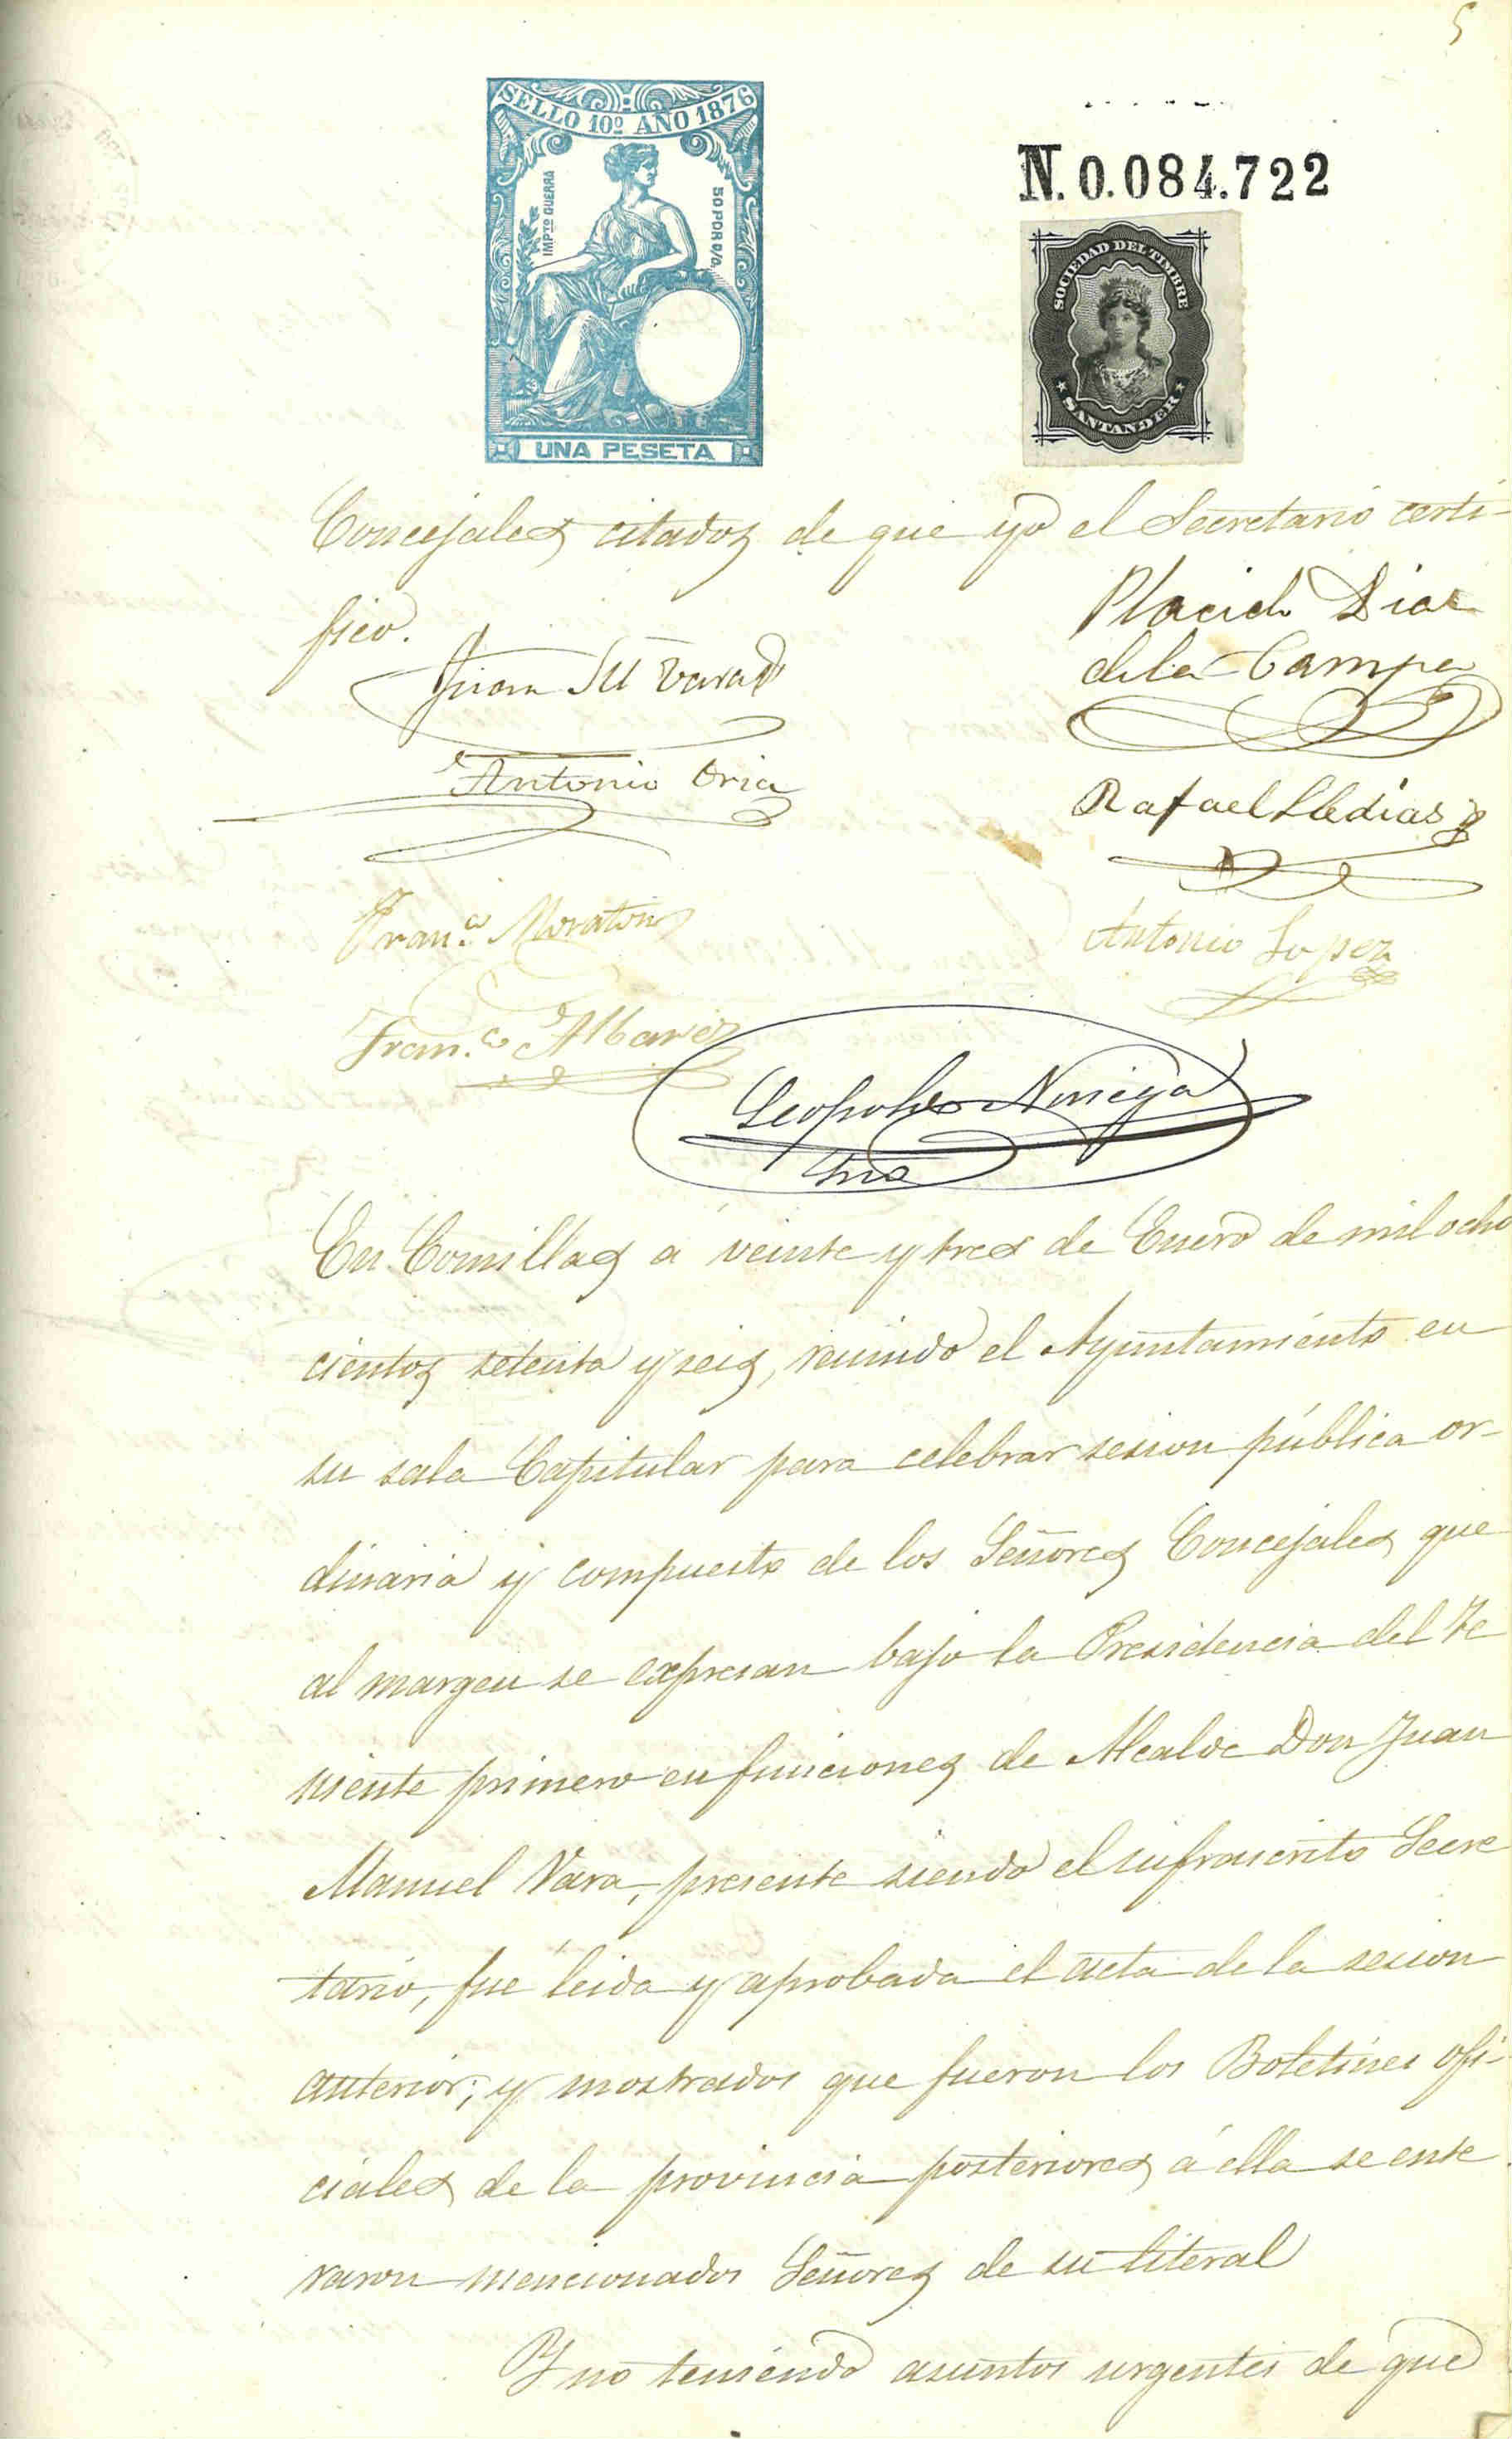 5
SELLO 10º AÑO 1876
IMPTO GUERRA
50 POR 0/0
UNA PESETA
N. 0.084.722
SOCIEDAD DEL TIMBRE
SANTANDER
Concejales citados de que yo el Secretario certi-
fico.
Placido Diaz
de la Campa
Juan M Vara
Antonio Oria
Rafael Lledias
Fran.co Moraton
Antonio Lopez
Fran.co Albarez
Leopoldo Noriega
Srio
En Comillas á veinte y tres de Enero de mil ocho
cientos setenta y seis, reunido el Ayuntamiento en
su sala Capitular para celebrar sesion pública or-
dinaria y compuesto de los Señores Concejales que
al margen se expresan bajo la Presidencia del Te
niente primero en funciones de Alcalde Don Juan
Manuel Vara, presente siendo el infrascrito Secre
tario, fue leida y aprobada el acta de la sesion
anterior; y mostrados que fueron los Boletines ofi-
ciales de la provincia posteriores á ella se ente
raron mencionados Señores de su literal
Y no teniendo asuntos urgentes de que